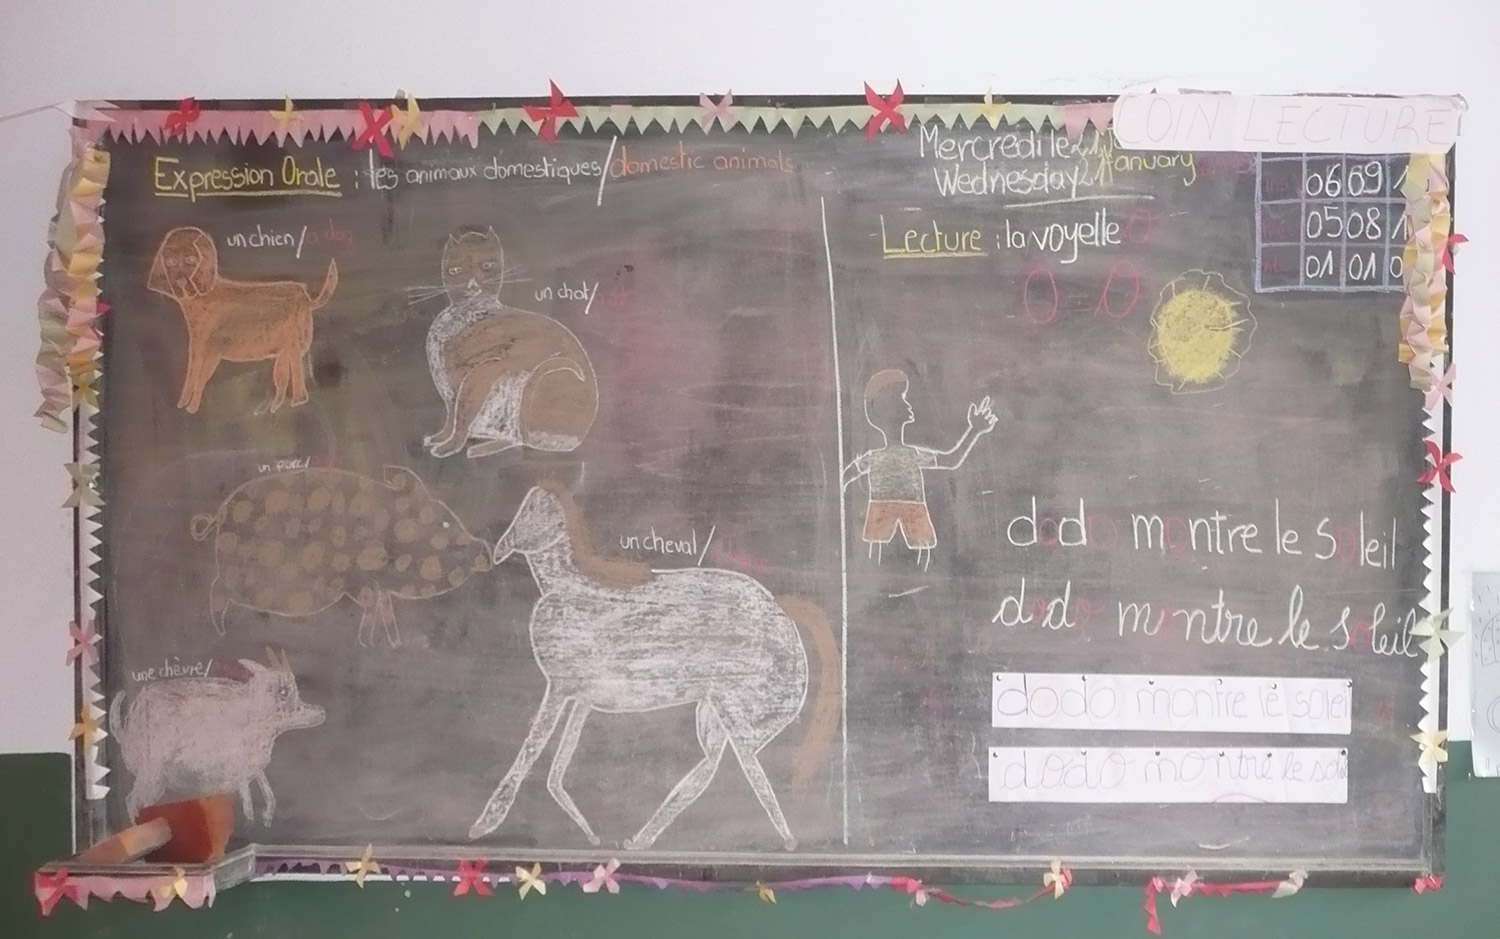 COIN LECTURE
Expression Orale : les animaux domestiques/domestic animals
un chien/a dog
un chat/
un porc/
un cheval/
une chèvre/
Mercredi le 21
Wednesday 21 January
06 09 1
05 08 1
01 01 0
Lecture : la voyelle o
O O
dodo montre le soleil
dodo montre le soleil
dodo montre le soleil
dodo montre le sole